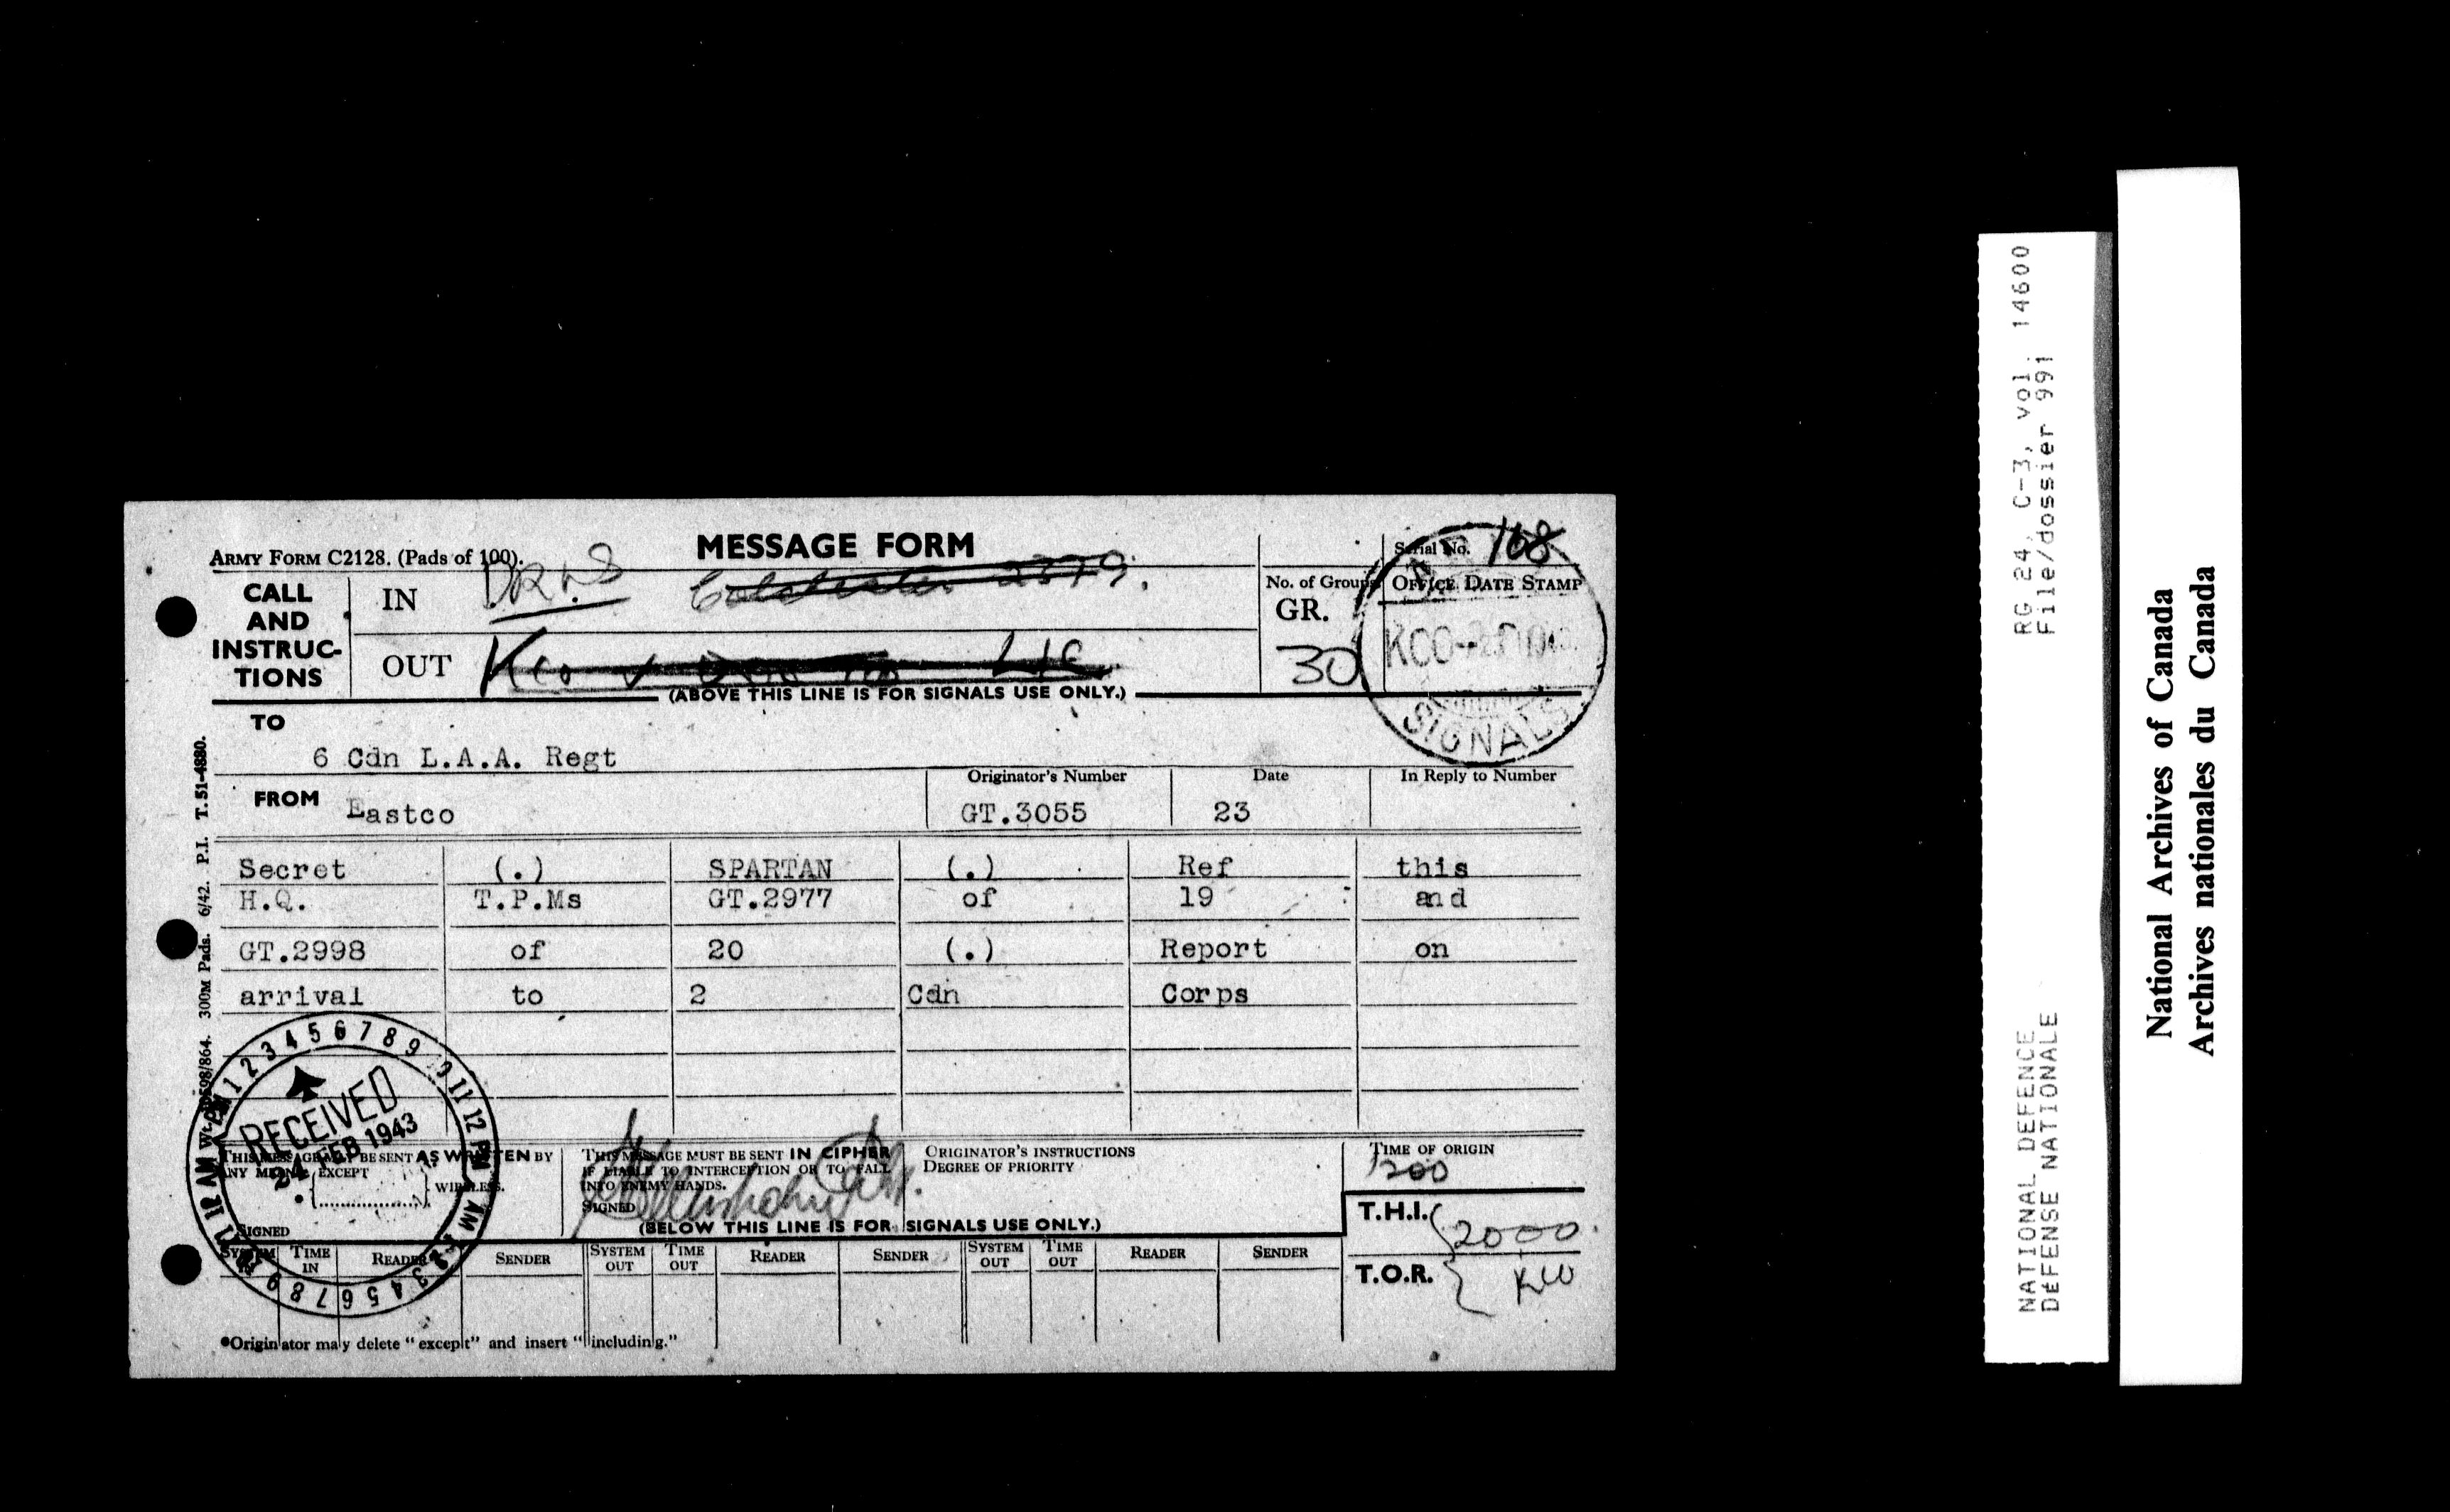 MESSAGE FORM
ARMY FORM C2128. (Pads of 100).
Serial No. 108
CALL AND INSTRUC-TIONS
IN
OUT
No. of Groups
GR.
30
OFFICE DATE STAMP
SIGNALS
(ABOVE THIS LINE IS FOR SIGNALS USE ONLY.)
TO
6 Cdn L.A.A. Regt
FROM Eastco
Originator's Number
GT.3055
Date
23
In Reply to Number
Secret (.) SPARTAN (.) Ref this
H.Q. T.P.Ms GT.2977 of 19 and
GT.2998 of 20 (.) Report on
arrival to 2 Cdn Corps
300M Pads. 6/42. P.I. T. 51-4880.
1 2 3 4 5 6 7 8 9 10 11 12 PM
RECEIVED
24 FEB 1943
THIS MESSAGE MAY BE SENT AS WRITTEN BY
ANY MEANS EXCEPT
WIRELESS.
SIGNED
THIS MESSAGE MUST BE SENT IN CIPHER
IF LIABLE TO INTERCEPTION OR TO FALL
INTO ENEMY HANDS.
SIGNED
ORIGINATOR'S INSTRUCTIONS
DEGREE OF PRIORITY
TIME OF ORIGIN
1200
(BELOW THIS LINE IS FOR SIGNALS USE ONLY.)
T.H.I. 2000
T.O.R. KW
SYSTEM IN TIME IN READER SENDER SYSTEM OUT TIME OUT READER SENDER SYSTEM OUT TIME OUT READER SENDER
*Originator may delete "except" and insert "including."
RG 24, C-3, vol. 14600
File/dossier 991
NATIONAL DEFENCE
DÉFENSE NATIONALE
National Archives of Canada
Archives nationales du Canada